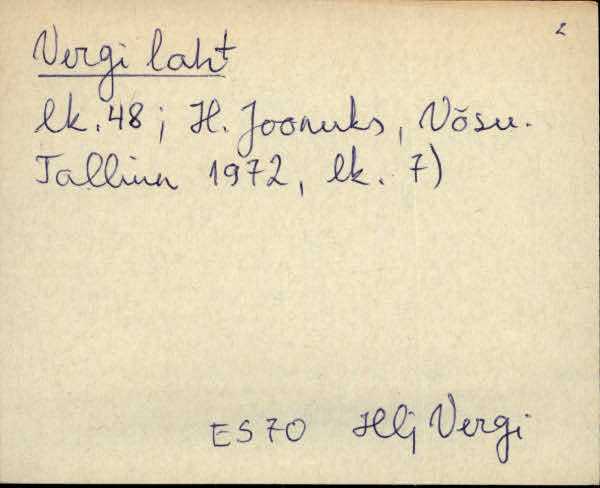 2
Vergi laht
lk. 48; H. Joonuks, Võsu.
Tallinn 1972, lk. 7)
ES 70 Hlj Vergi